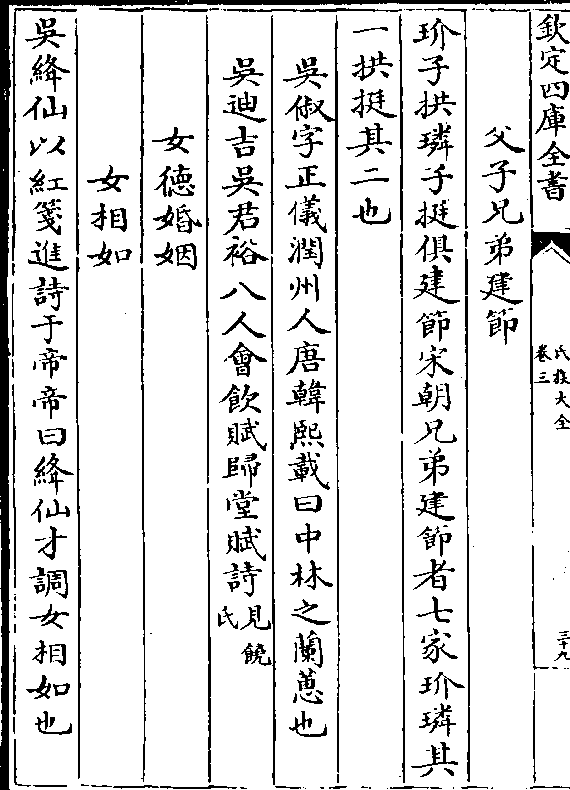 欽定四庫全書
氏族大全
卷三
三十九
父子兄弟建節
玠子拱璘子挺俱建節宋朝兄弟建節者七家玠璘其
一拱挺其二也
吳俶字正儀潤州人唐韓熙載曰中林之蘭蕙也
吳迪吉吳君裕八人會飲賦歸堂賦詩見饒氏
女德婚姻
女相如
吳絳仙以紅箋進詩于帝帝曰絳仙才調女相如也